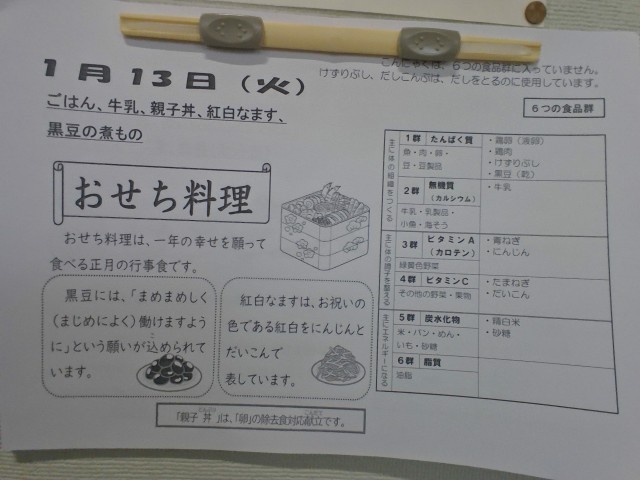 1月13日(火)
ごはん、牛乳、親子丼、紅白なます、
黒豆の煮もの
こんにゃくは、6つの食品群に入っていません。
けずりぶし、だしこんぶは、だしをとるのに使用しています。
6つの食品群
おせち料理
おせち料理は、一年の幸せを願って
食べる正月の行事食です。
黒豆には、「まめまめしく
(まじめによく)働けますよう
に」という願いが込められて
います。
紅白なますは、お祝いの
色である紅白をにんじんと
だいこんで
表しています。
「親子丼」は、「卵」の除去食対応献立です。
主に体の組織をつくる
1群 たんぱく質
魚・肉・卵・
豆・豆製品
・鶏卵(液卵)
・鶏肉
・けずりぶし
・黒豆(乾)
2群 無機質
(カルシウム)
牛乳・乳製品・
小魚・海そう
・牛乳
主に体の調子を整える
3群 ビタミンA
(カロテン)
緑黄色野菜
・青ねぎ
・にんじん
4群 ビタミンC
その他の野菜・果物
・たまねぎ
・だいこん
主にエネルギーになる
5群 炭水化物
米・パン・めん・
いも・砂糖
・精白米
・砂糖
6群 脂質
油脂